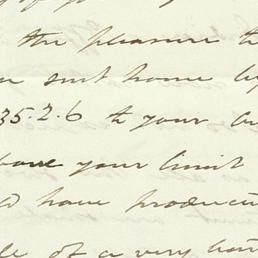 the pleasure th
sent home by
35.2.6 to your
above your limit
have product
of a very